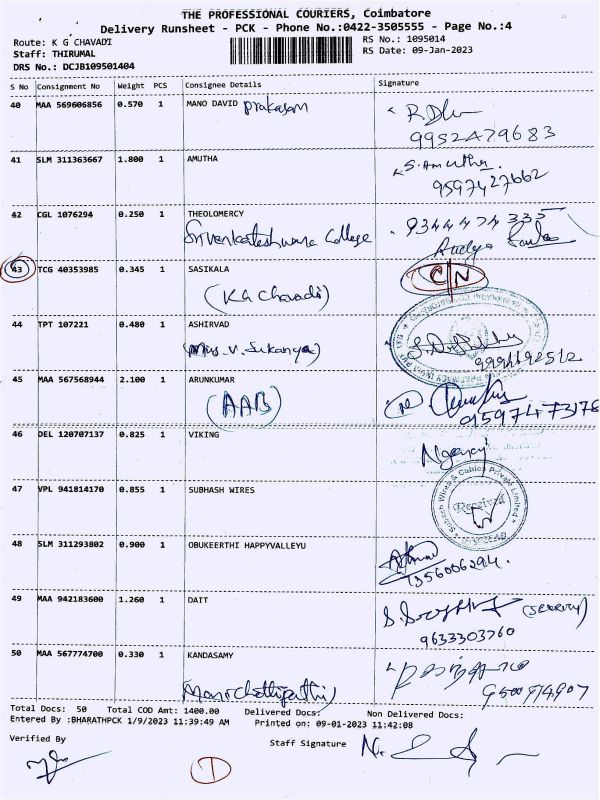 THE PROFESSIONAL COURIERS, Coimbatore
Delivery Runsheet - PCK - Phone No.:0422-3505555 - Page No.:4
Route: K G CHAVADI
RS No.: 1095014
Staff: THIRUMAL
RS Date: 09-Jan-2023
DRS No.: DCJB109501404
S No Consignment No Weight PCS Consignee Details Signature
40 MAA 569606856 0.570 1 MANO DAVID prakasam
9952479683
41 SLM 311363667 1.800 1 AMUTHA S. Amutha
9597427662
42 CGL 1076294 0.250 1 THEOLOMERCY 9344474335
Sri Venkateshwara College
43 TCG 40353985 0.345 1 SASIKALA CN
(KG Chavadi)
44 TPT 107221 0.480 1 ASHIRVAD
(Mrs. V. Sukanya)
45 MAA 567568944 2.100 1 ARUNKUMAR
(AAB) 9597473178
46 DEL 120707137 0.825 1 VIKING
47 VPL 941814170 0.855 1 SUBHASH WIRES
Subash Wires & Cables Private Limited
Received
48 SLM 311293802 0.900 1 OBUKEERTHI HAPPYVALLEYU
49 MAA 942183600 1.260 1 DAIT
9633303760
50 MAA 567774700 0.330 1 KANDASAMY
Total Docs: 50 Total COD Amt: 1400.00 Delivered Docs: Non Delivered Docs:
Entered By :BHARATHPCK 1/9/2023 11:39:49 AM Printed on: 09-01-2023 11:42:08
Verified By
Staff Signature